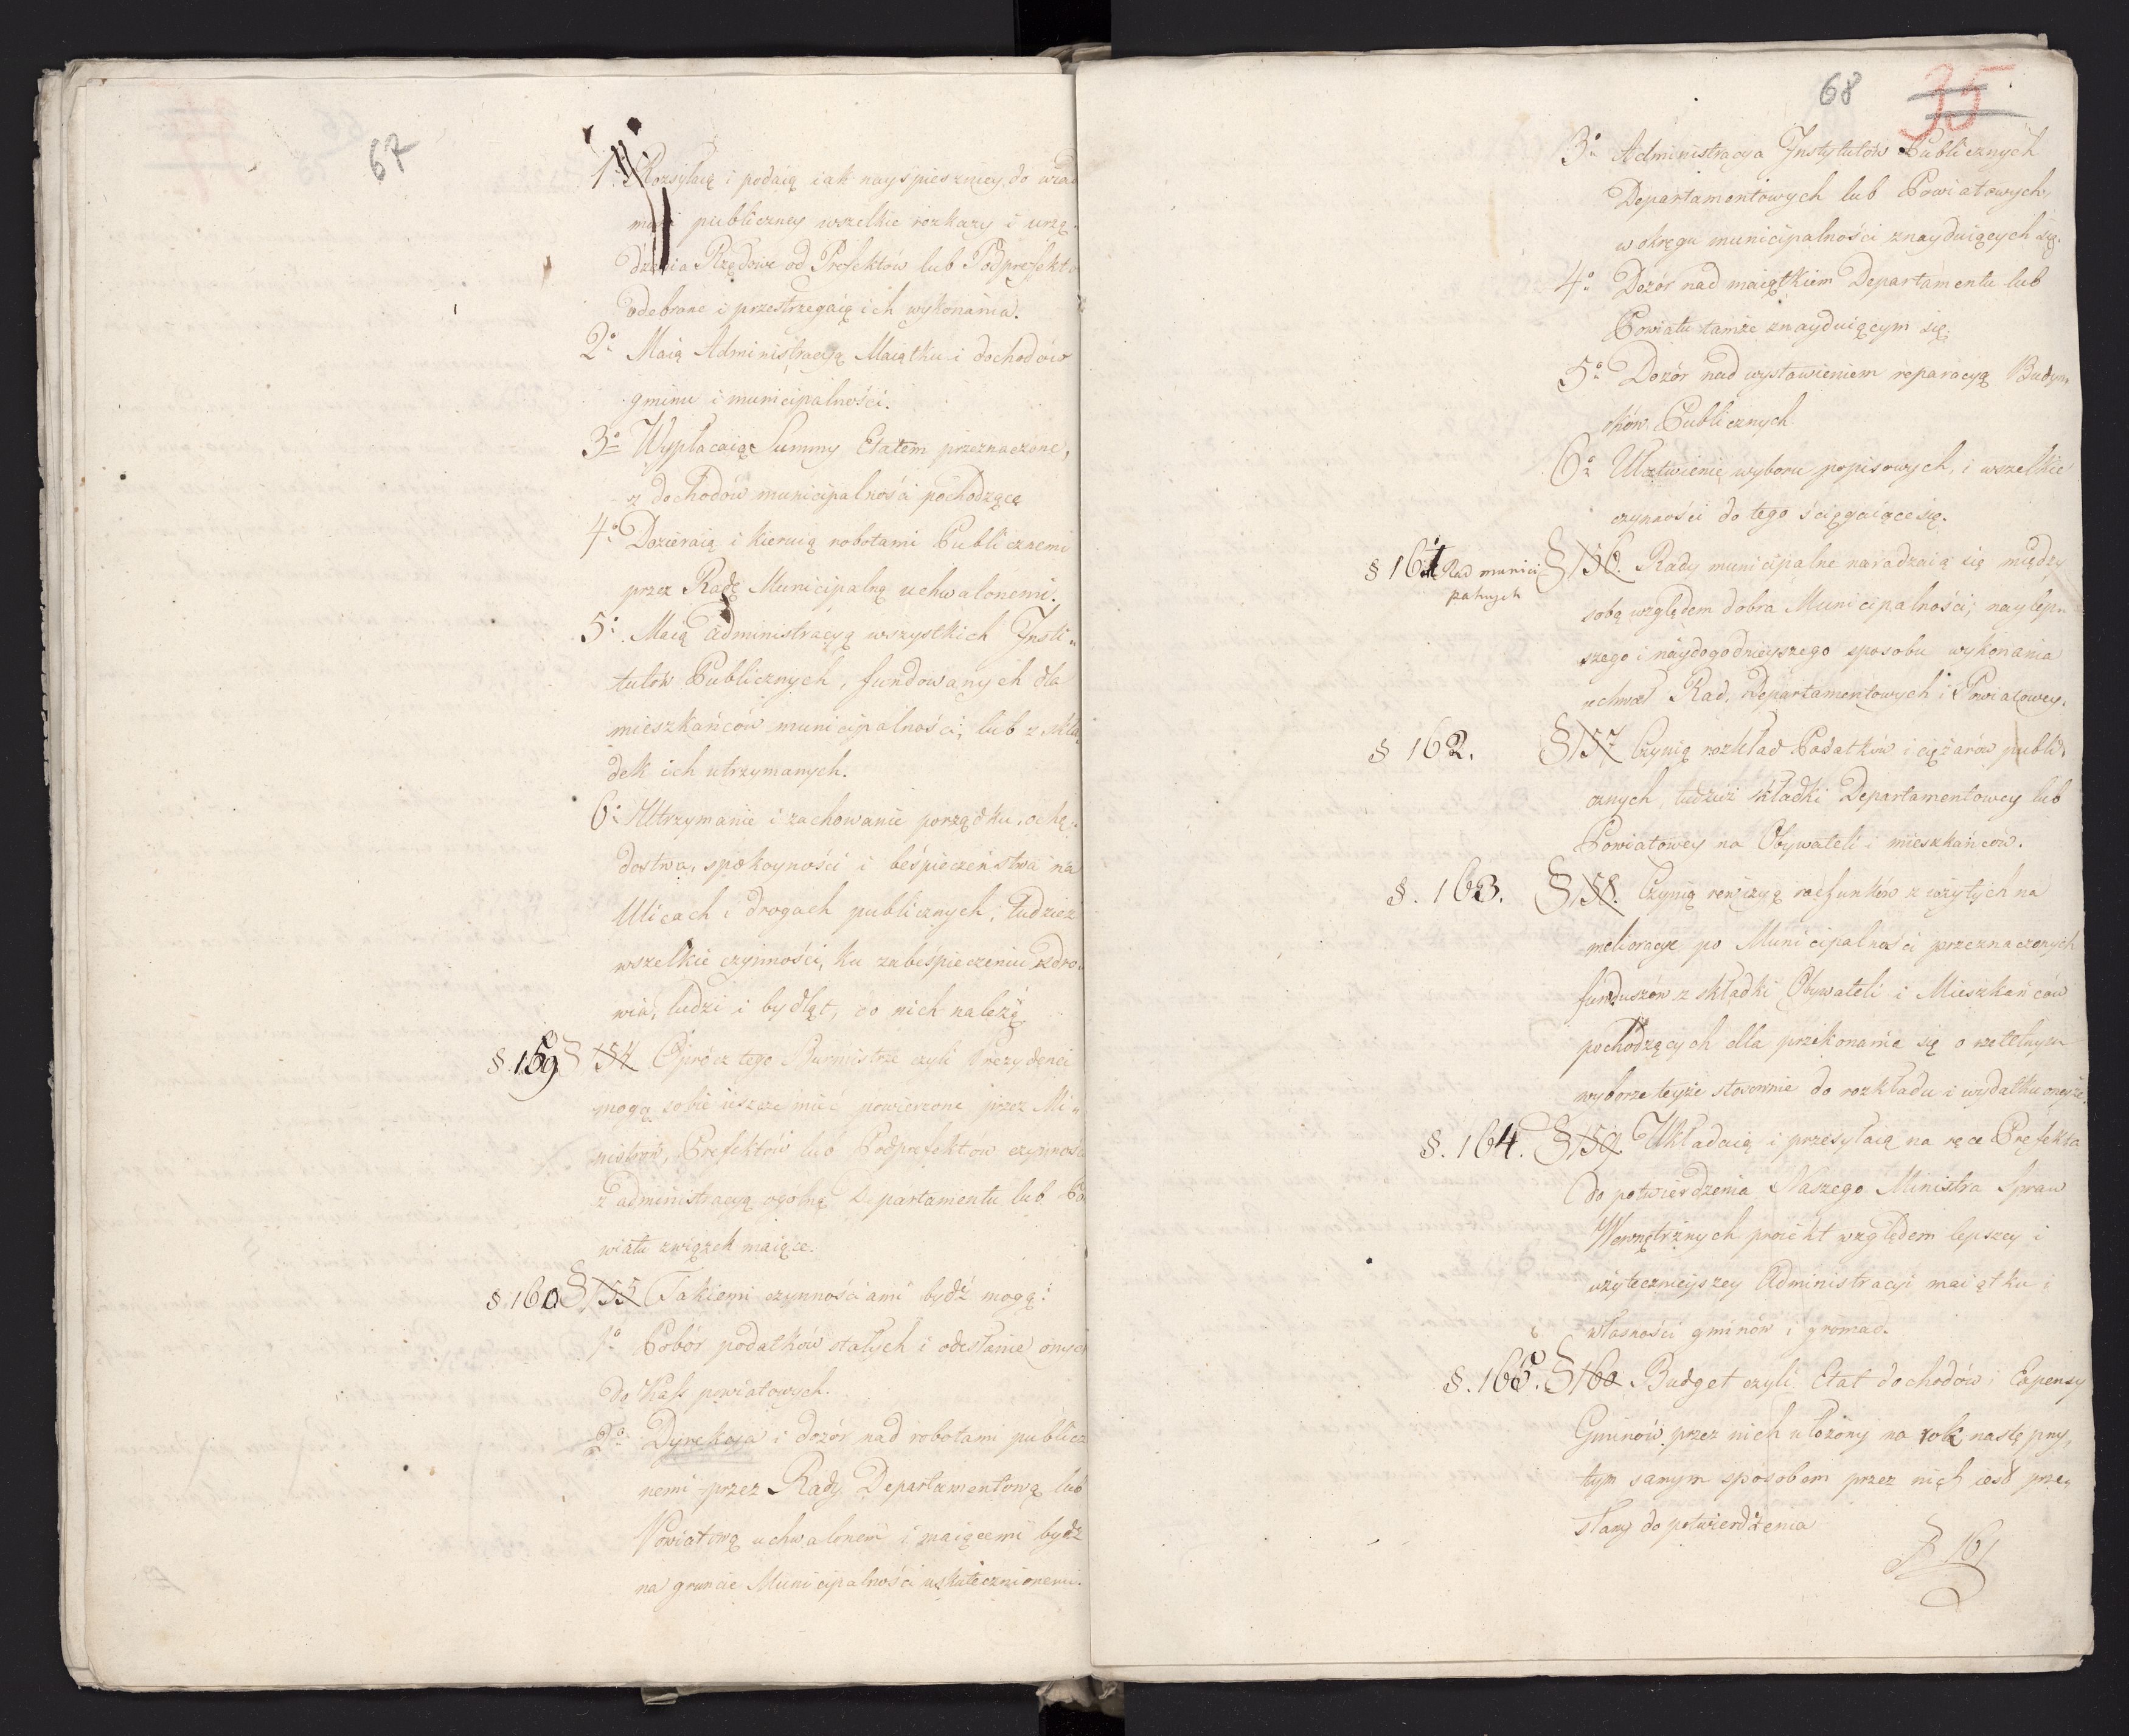 67
1o Rozsyłaią i podaią iak nayśpieszniey do wiad
mości publiczney wszelkie rozkazy i urzą„
dzenia Rządowe od Prefektów lub Podprefektó
odebrane i przestrzegaią ich wykonania.
2o Maią Administracyą Maiątku i dochodów
gminu i municipalności.
3o Wypłacaią Summy Etatem przeznaczone,
z dochodów municipalności pochodzące
4o Dozieraią i kieruią robotami Publicznemi
przez Radę Municipalną uchwalonemi.
5o Maią administracyą wszystkich Insti„
tutów Publicznych, fundowanych dla
mieszkańców municipalności, lub z skła„
dek ich utrzymanych.
6o Utrzymanie i zachowanie porządku, ochę„
dostwa, spokoyności i beśpieczeństwa na
Ulicach i drogach publicznych, tudzież
wszelkie czynności, ku zabeśpieczeniu zdro„
wia, ludzi i bydląt, do nich należą
§. 159 § 154 Oprócz tego Burmistrze czyli Prezydenci
mogą sobie ieszcze mieć powierzone przez Mi„
nistrów, Prefektów lub Podprefektów czynności
z administracyą ogólną Departamentu lub Po
wiatu związek maiące.
§. 160 § 155 Takiemi czynnościami bydź mogą:
1o Pobór podatków stałych i odesłanie onych
do Kass powiatowych.
2o Dyrekcya i dozór nad robotami publicz
nemi przez Rady Departamentową lub
Powiatową uchwalonemi i maiącemi bydź
na gruncie Municipalności uskutecznionemi.
68 35
3o Administracya Instytutów Publicznych
Departamentowych lub Powiatowych,
w okręgu municipalności znayduiących się.
4o Dozór nad maiątkiem Departamentu lub
Powiatu tamże znayduiącym się.
5o Dozór nad wystawieniem reparacyą Budyn„
ków Publicznych.
6o Ułatwienie wyboru popisowych, i wszelkie
czynności do tego ściągaiące się.
§ 161 Rad munici
palnych
§ 156. Rady municipalne naradzaią się między
sobą względem dobra Municipalności, naylep„
szego i naydogodnieyszego sposobu wykonania
uchwał Rad, Departamentowych i Powiatowey.
§ 162. § 157 Czynią rozkład Podatków i ciężarów publi„
cznych, tudzież składki Departamentowey lub
Powiatowey na Obywateli i mieszkańców.
§. 163. § 158. Czynią rewizyą rachunków z użytych na
melioracye po Municipalności przeznaczonych
funduszów z składki Obywateli i Mieszkańców
pochodzących dla przekonania się o rzetelnym
wyborze teyże stosownie do rozkładu i wydatku oneyże.
§. 164. § 159. Układaią i przesyłaią na ręce Prefekta
do potwierdzenia Naszego Ministra Spraw
Wewnętrznych proiekt względem lepszey i
użytecznieyszey Administracyi maiątku i
własności gminów i gromad.
§. 165. § 160. Budget czyli Etat dochodów i Expensy
Gminów przez nich ułożony na rok następny,
tym samym sposobem przez nich iest prze„
słany do potwierdzenia
§ 161